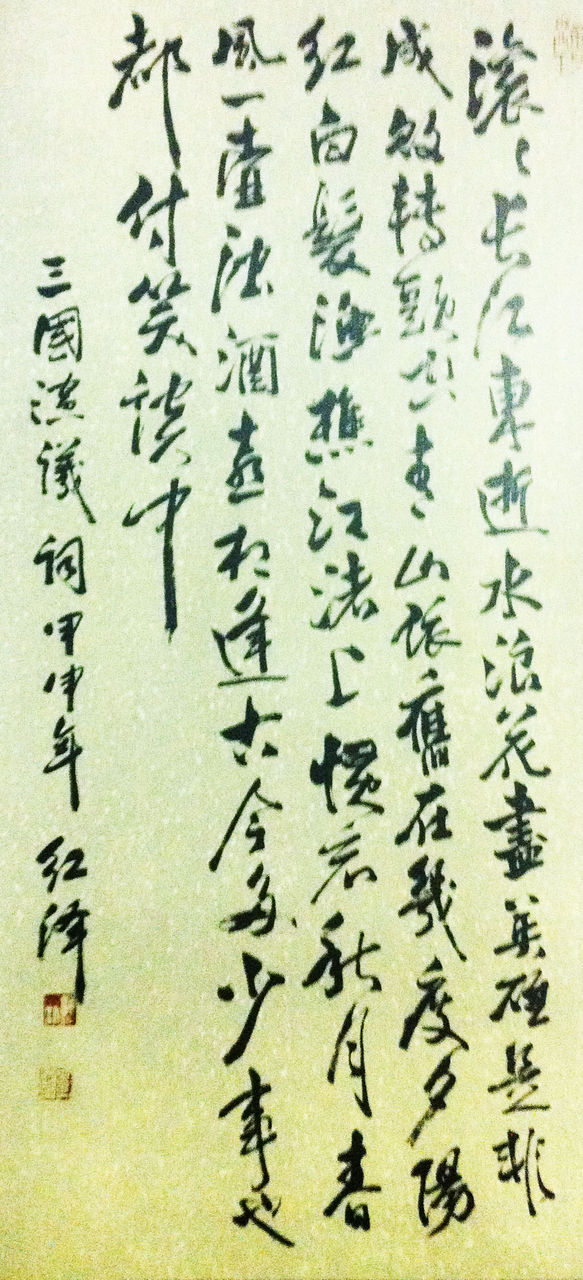 滾〻長江東逝水浪花盡英雄是非
成敗轉頭空青〻山依舊在幾度夕陽
紅白髮漁樵江渚上慣看秋月春
風一壺濁酒喜相逢古今多少事也
都付笑談中
三國演議詞甲申年 紅澤